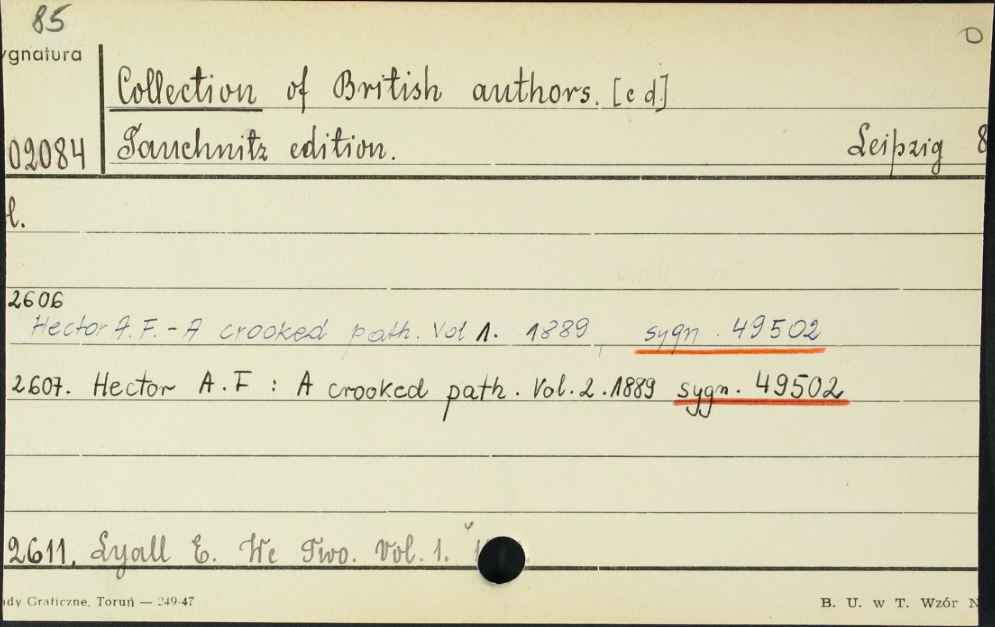 85
ygnatura
Collection of British authors. [c d.]
02084
Tauchnitz edition. Leipzig 8
l.
2606
Hector A.F. - A crooked path. Vol 1. 1889 sygn. 49502
2607. Hector A.F : A crooked path. Vol.2.1889 sygn. 49502
2611. Lyall E. We Two. Vol. 1.
ady Graficzne, Toruń — 249-47
B. U. w T. Wzór N